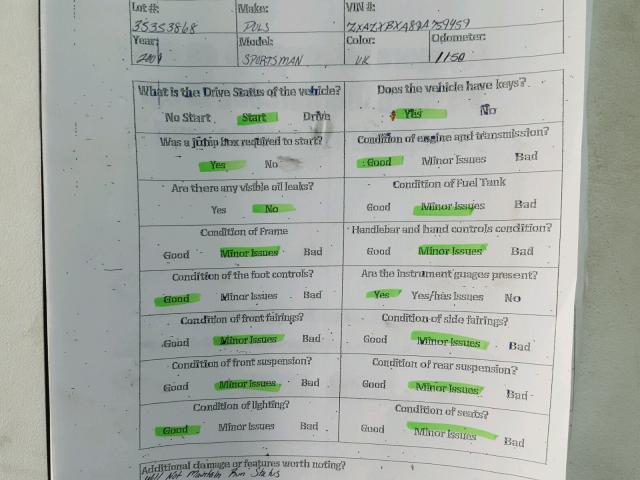 Lot #: Make: VIN #:
35353868 POLS
Year: Model: Color: Odometer:
SPORTSMAN UK 1150
What is the Drive Status of the vehicle? Does the vehicle have keys?
No Start Start Drive Yes No
Was a jump box required to start? Condition of engine and transmission?
Yes No Good Minor Issues Bad
Are there any visible oil leaks? Condition of Fuel Tank
Yes No Good Minor Issues Bad
Condition of Frame Handlebar and hand controls condition?
Good Minor Issues Bad Good Minor Issues Bad
Condition of the foot controls? Are the instrument guages present?
Good Minor Issues Bad Yes Yes/has Issues No
Condition of front fairings? Condition of side fairings?
Good Minor Issues Bad Good Minor Issues Bad
Condition of front suspension? Condition of rear suspension?
Good Minor Issues Bad Good Minor Issues Bad
Condition of lighting? Condition of seats?
Good Minor Issues Bad Good Minor Issues Bad
Additional damage or features worth noting?
Will Not Maintain Run Status